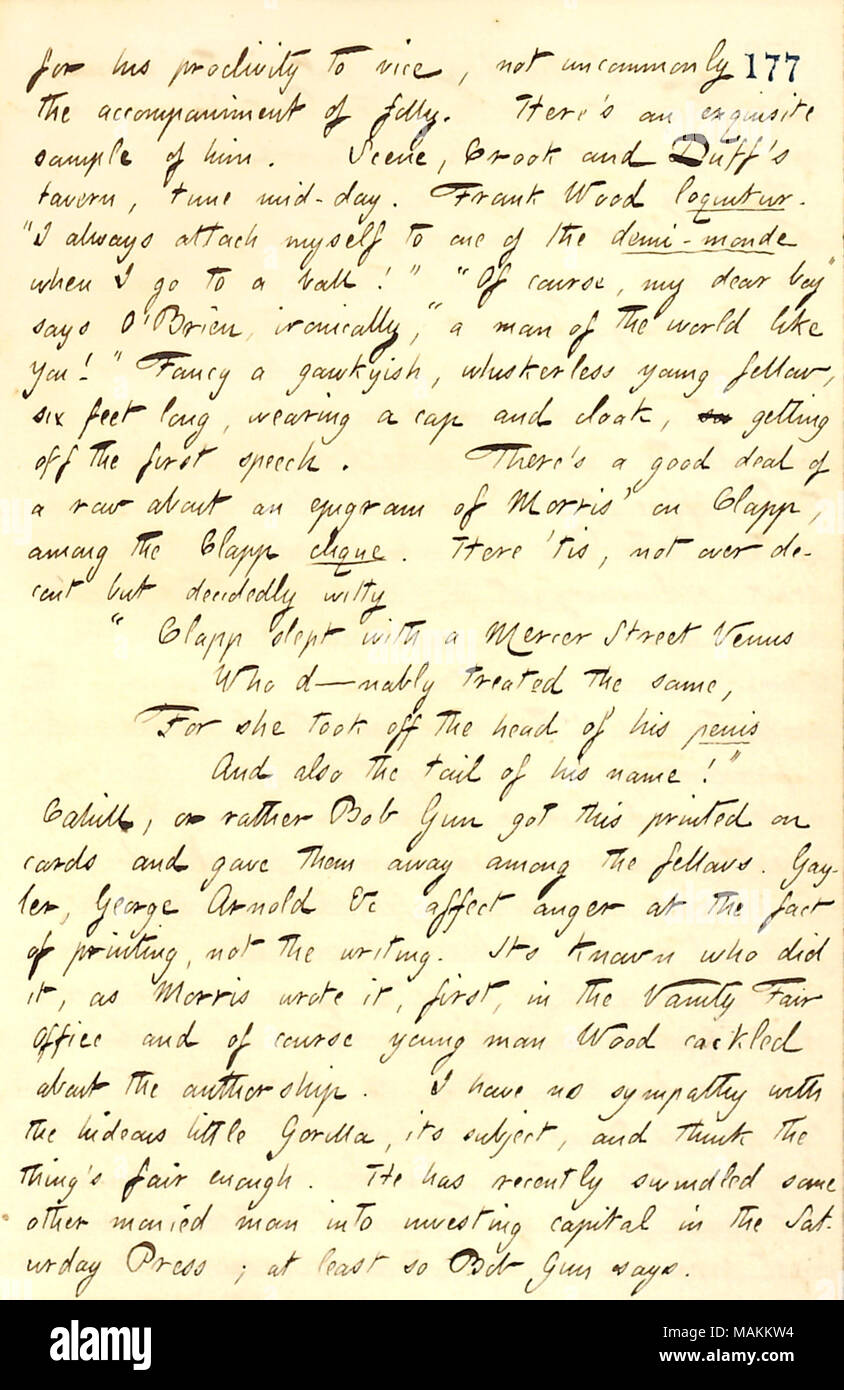 for his proclivity to vice, not uncommonly 177
the accompaniment of folly. Here's an exquisite
sample of him. Scene, Crook and Duff's
tavern, time mid-day. Frank Wood loquitur.
"I always attach myself to one of the demi-monde
when I go to a ball!" "Of course, my dear boy"
says O'Brien, ironically, "a man of the world like
you!" Fancy a gawkyish, whiskerless young fellow,
six feet long, wearing a cap and cloak, so getting
off the first speech. There's a good deal of
a row about an epigram of Morris' on Clapp,
among the Clapp clique. Here 'tis, not over de-
cent but decidedly witty
"Clapp slept with a Mercer Street Venus
Who d—nably treated the same,
For she took off the head of his penis
And also the tail of his name!"
Cahill, or rather Bob Gun got this printed on
cards and gave them away among the fellows. Gay-
ler, George Arnold &c affect anger at the fact
of printing, not the writing. Its known who did
it, as Morris wrote it, first, in the Vanity Fair
Office and of course young man Wood cackled
about the authorship. I have no sympathy with
the hideous little Gorilla, its subject, and think the
thing's fair enough. He has recently swindled some
other monied man into investing capital in the Sat-
urday Press; at least so Bob Gun says.
alamy
Image ID: MAKKW4
www.alamy.com